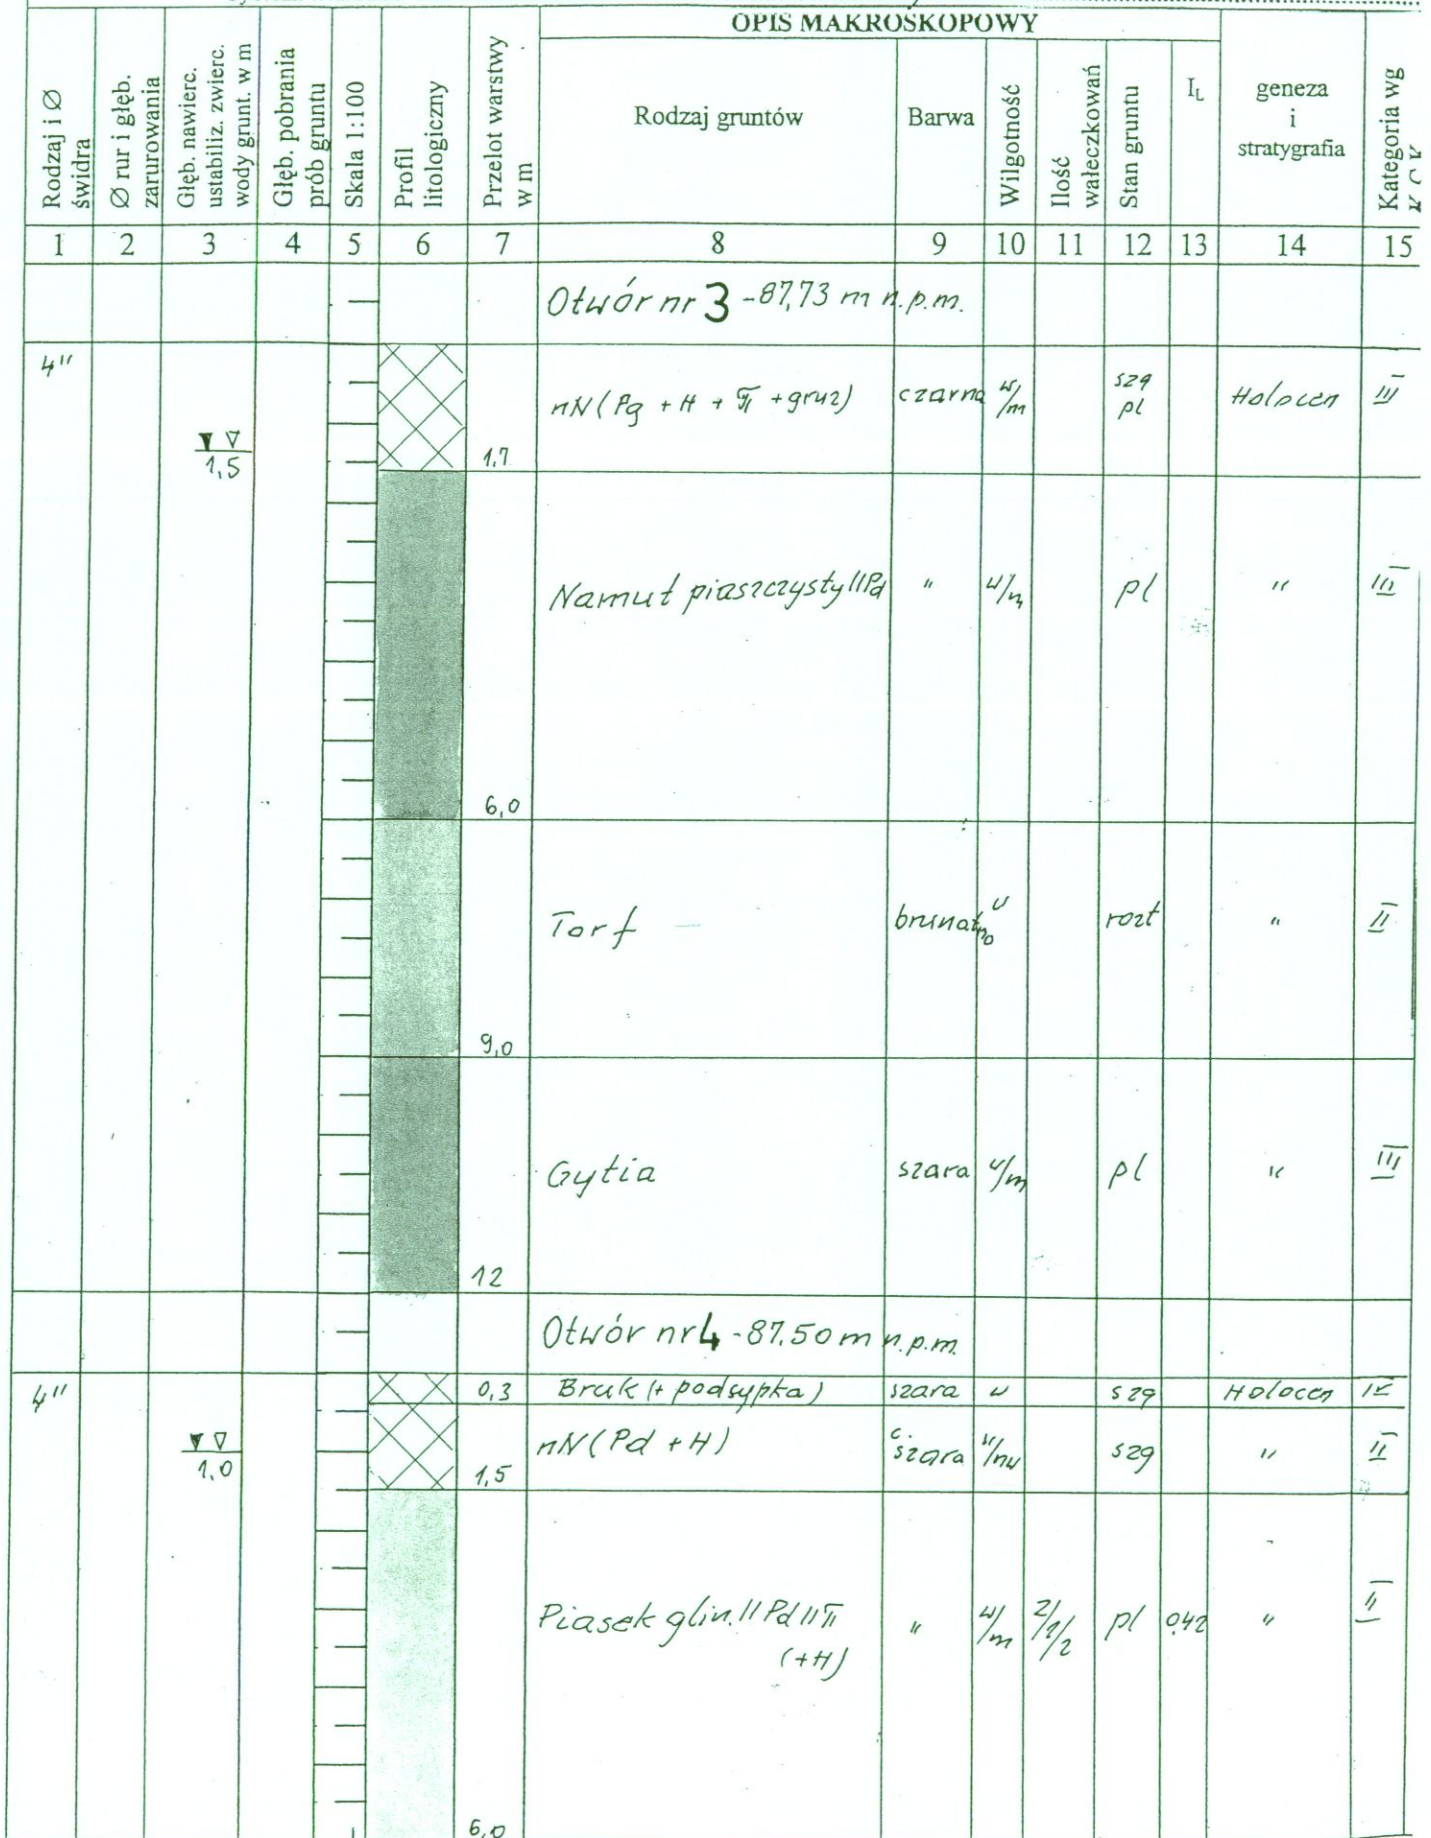 OPIS MAKROSKOPOWY
Rodzaj i Ø świdra
Ø rur i głęb. zarurowania
Głęb. nawierc. ustabiliz. zwierc. wody grunt. w m
Głęb. pobrania prób gruntu
Skala 1:100
Profil litologiczny
Przelot warstwy w m
Rodzaj gruntów
Barwa
Wilgotność
Ilość wałeczkowań
Stan gruntu
I_L
geneza i stratygrafia
Kategoria wg
1 2 3 4 5 6 7 8 9 10 11 12 13 14 15
Otwór nr 3 - 87,73 m n.p.m.
4"
1,5
1,7
nN (Pg + H + π + gruz) czarna w/m szg pl Holocen III
Namuł piaszczysty//Pd " w/m pl " III
6,0
Torf brunatna w rozł " II
9,0
Gytia szara w/m pl " III
12
Otwór nr 4 - 87.50 m n.p.m.
4" 0,3 Bruk (+ podsypka) szara w szg Holocen IV
1,0
1,5 nN (Pd + H) c. szara w/nw szg " II
Piasek glin.//Pd//π " w/m 2/1/2 pl 0,42 " II
(+H)
6,0